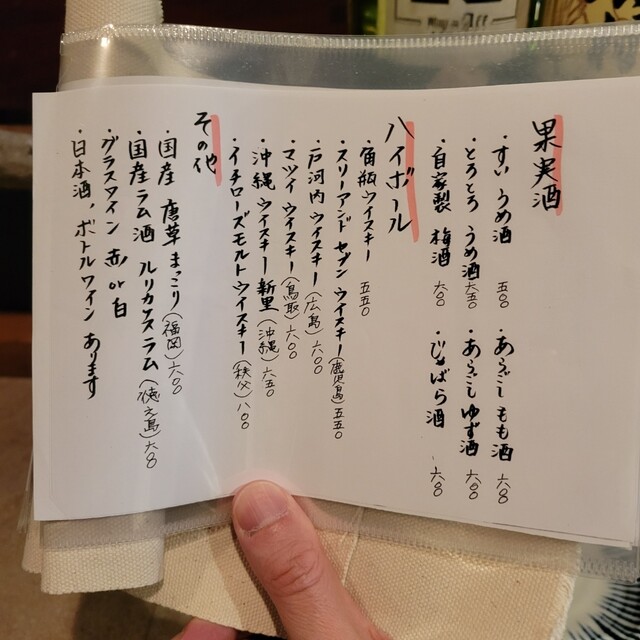 果実酒
・すい うめ酒 五〇〇
・とろとろ うめ酒 六五〇
・自家製 梅酒 六〇〇
・あらごし もも酒 六〇〇
・あらごし ゆず酒 六〇〇
・じゃばら酒 六〇〇
ハイボール
・角瓶ウイスキー 五五〇
・スリーアンド セブン ウイスキー(鹿児島) 五五〇
・戸河内 ウイスキー(広島) 六〇〇
・マツイ ウイスキー(鳥取) 六〇〇
・沖縄 ウイスキー 新里(沖縄) 六五〇
・イチローズモルトウイスキー(秩父) 八〇〇
その他
・国産 唐草 まっこり(福岡) 六〇〇
・国産ラム酒 ルリカケス ラム(徳之島) 六〇〇
・グラスワイン 赤 or 白
・日本酒、ボトルワイン あります